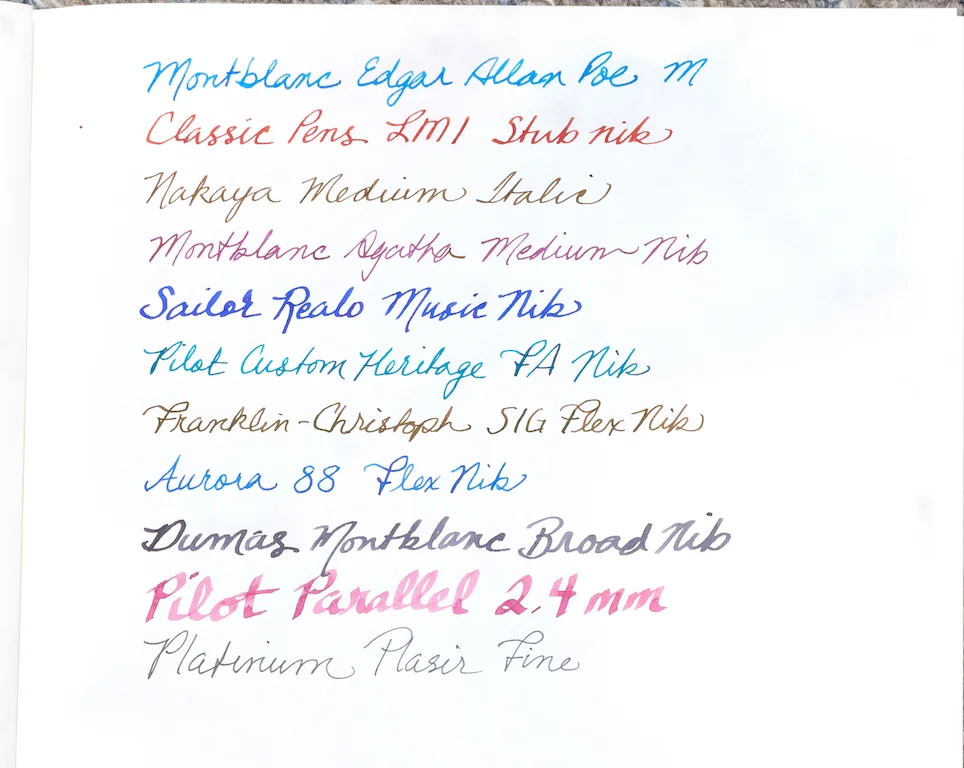 Montblanc Edgar Allan Poe M
Classic Pens LM1 Stub nib
Nakaya Medium Italic
Montblanc Agatha Medium Nib
Sailor Realo Music Nib
Pilot Custom Heritage FA Nib
Franklin-Christoph SIG Flex Nib
Aurora 88 Flex Nib
Dumas Montblanc Broad Nib
Pilot Parallel 2.4 mm
Platinum Plasir Fine